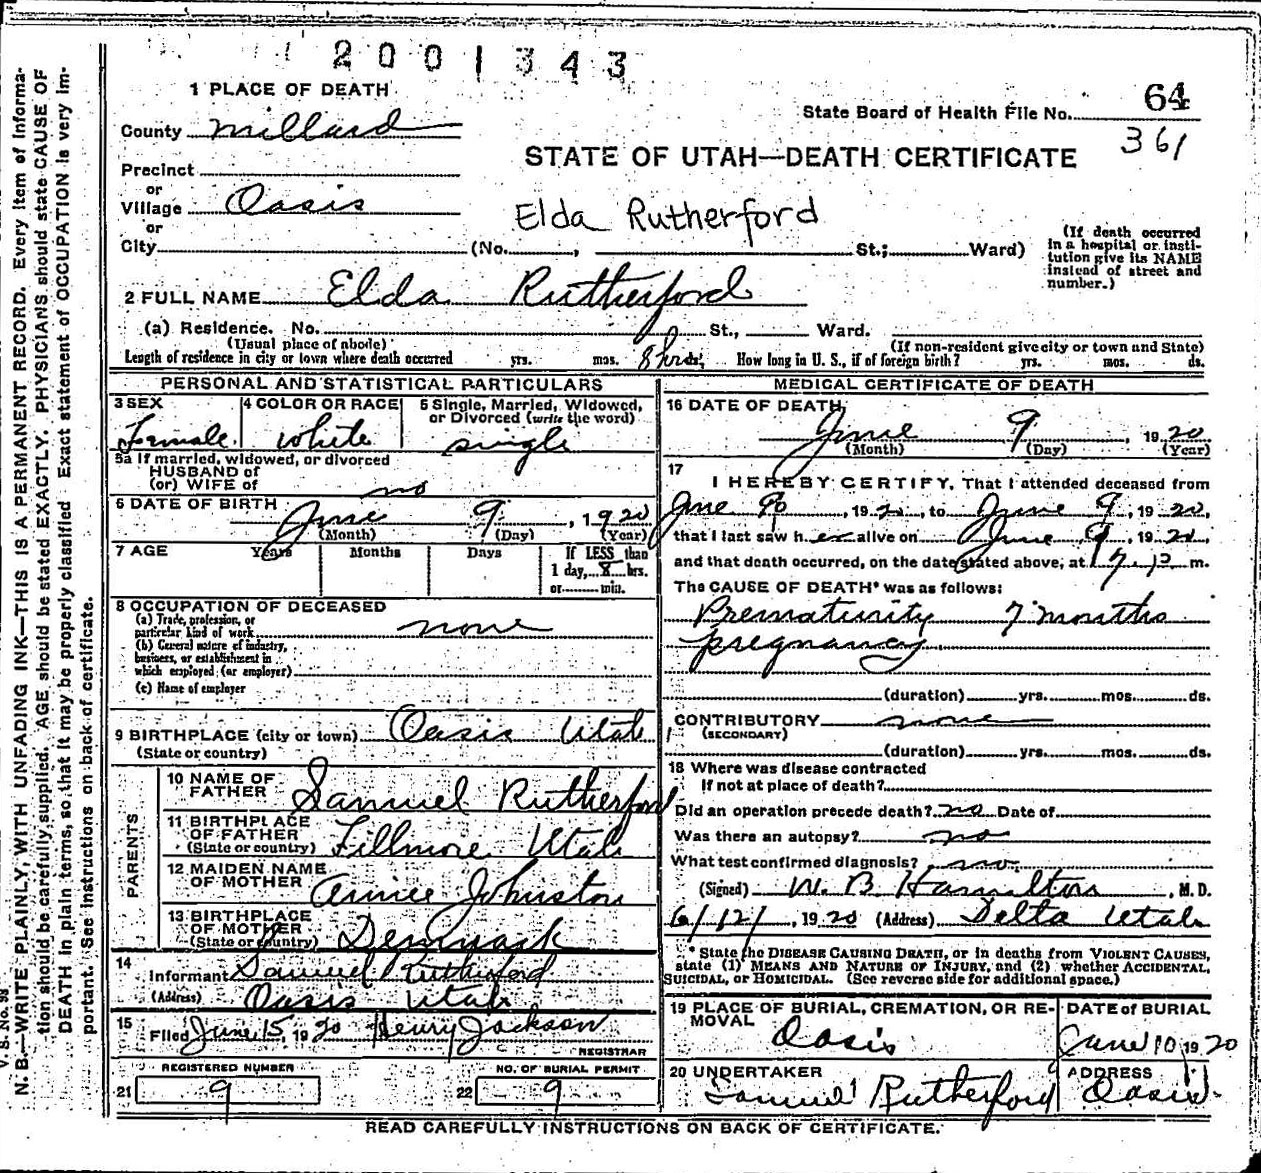 2001343
1 PLACE OF DEATH
State Board of Health File No. 64
361
County Millard
STATE OF UTAH—DEATH CERTIFICATE
Precinct
or
Village Oasis
Elda Rutherford
or
City (No. , St.; Ward)
(If death occurred
in a hospital or insti-
tution give its NAME
instead of street and
number.)
2 FULL NAME Elda Rutherford
(a) Residence. No. St., Ward.
(Usual place of abode) (If non-resident give city or town and State)
Length of residence in city or town where death occurred yrs. mos. 8 hrs. How long in U. S., if of foreign birth? yrs. mos. ds.
PERSONAL AND STATISTICAL PARTICULARS
3 SEX
Female
4 COLOR OR RACE
white
5 Single, Married, Widowed,
or Divorced (write the word)
single
5a If married, widowed, or divorced
HUSBAND of
(or) WIFE of no
6 DATE OF BIRTH
June 9, 1920
(Month) (Day) (Year)
7 AGE Years Months Days If LESS than
1 day, 8 hrs.
or min.
8 OCCUPATION OF DECEASED
(a) Trade, profession, or
particular kind of work none
(b) General nature of industry,
business, or establishment in
which employed (or employer)
(c) Name of employer
9 BIRTHPLACE (city or town) Oasis Utah
(State or country)
PARENTS
10 NAME OF
FATHER Samuel Rutherford
11 BIRTHPLACE
OF FATHER
(State or country) Fillmore Utah
12 MAIDEN NAME
OF MOTHER Annie Johnston
13 BIRTHPLACE
OF MOTHER
(State or country) Denmark
14
Informant Samuel Rutherford
(Address) Oasis Utah
15
Filed June 15, 1920 Henry Jackson
REGISTRAR
REGISTERED NUMBER
21 9
NO. OF BURIAL PERMIT
22 9
MEDICAL CERTIFICATE OF DEATH
16 DATE OF DEATH
June 9, 1920
(Month) (Day) (Year)
17
I HEREBY CERTIFY, That I attended deceased from
June 9, 1920, to June 9, 1920,
that I last saw her alive on June 9, 1920,
and that death occurred, on the date stated above, at m.
The CAUSE OF DEATH* was as follows:
Prematurity 7 months
pregnancy
(duration) yrs. mos. ds.
CONTRIBUTORY none
(SECONDARY)
(duration) yrs. mos. ds.
18 Where was disease contracted
If not at place of death?
Did an operation precede death? no Date of
Was there an autopsy? no
What test confirmed diagnosis? no
(Signed) W. B Hamilton, M. D.
6/12/, 1920 (Address) Delta Utah
* State the DISEASE CAUSING DEATH, or in deaths from VIOLENT CAUSES,
state (1) MEANS AND NATURE OF INJURY, and (2) whether ACCIDENTAL,
SUICIDAL, or HOMICIDAL. (See reverse side for additional space.)
19 PLACE OF BURIAL, CREMATION, OR RE-
MOVAL
Oasis
DATE of BURIAL
June 10, 1920
20 UNDERTAKER
Samuel Rutherford
ADDRESS
Oasis
READ CAREFULLY INSTRUCTIONS ON BACK OF CERTIFICATE.
V. S. No. 98
N. B.—WRITE PLAINLY, WITH UNFADING INK—THIS IS A PERMANENT RECORD. Every item of informa-
tion should be carefully supplied. AGE should be stated EXACTLY. PHYSICIANS should state CAUSE OF
DEATH in plain terms, so that it may be properly classified. Exact statement of OCCUPATION is very im-
portant. See instructions on back of certificate.